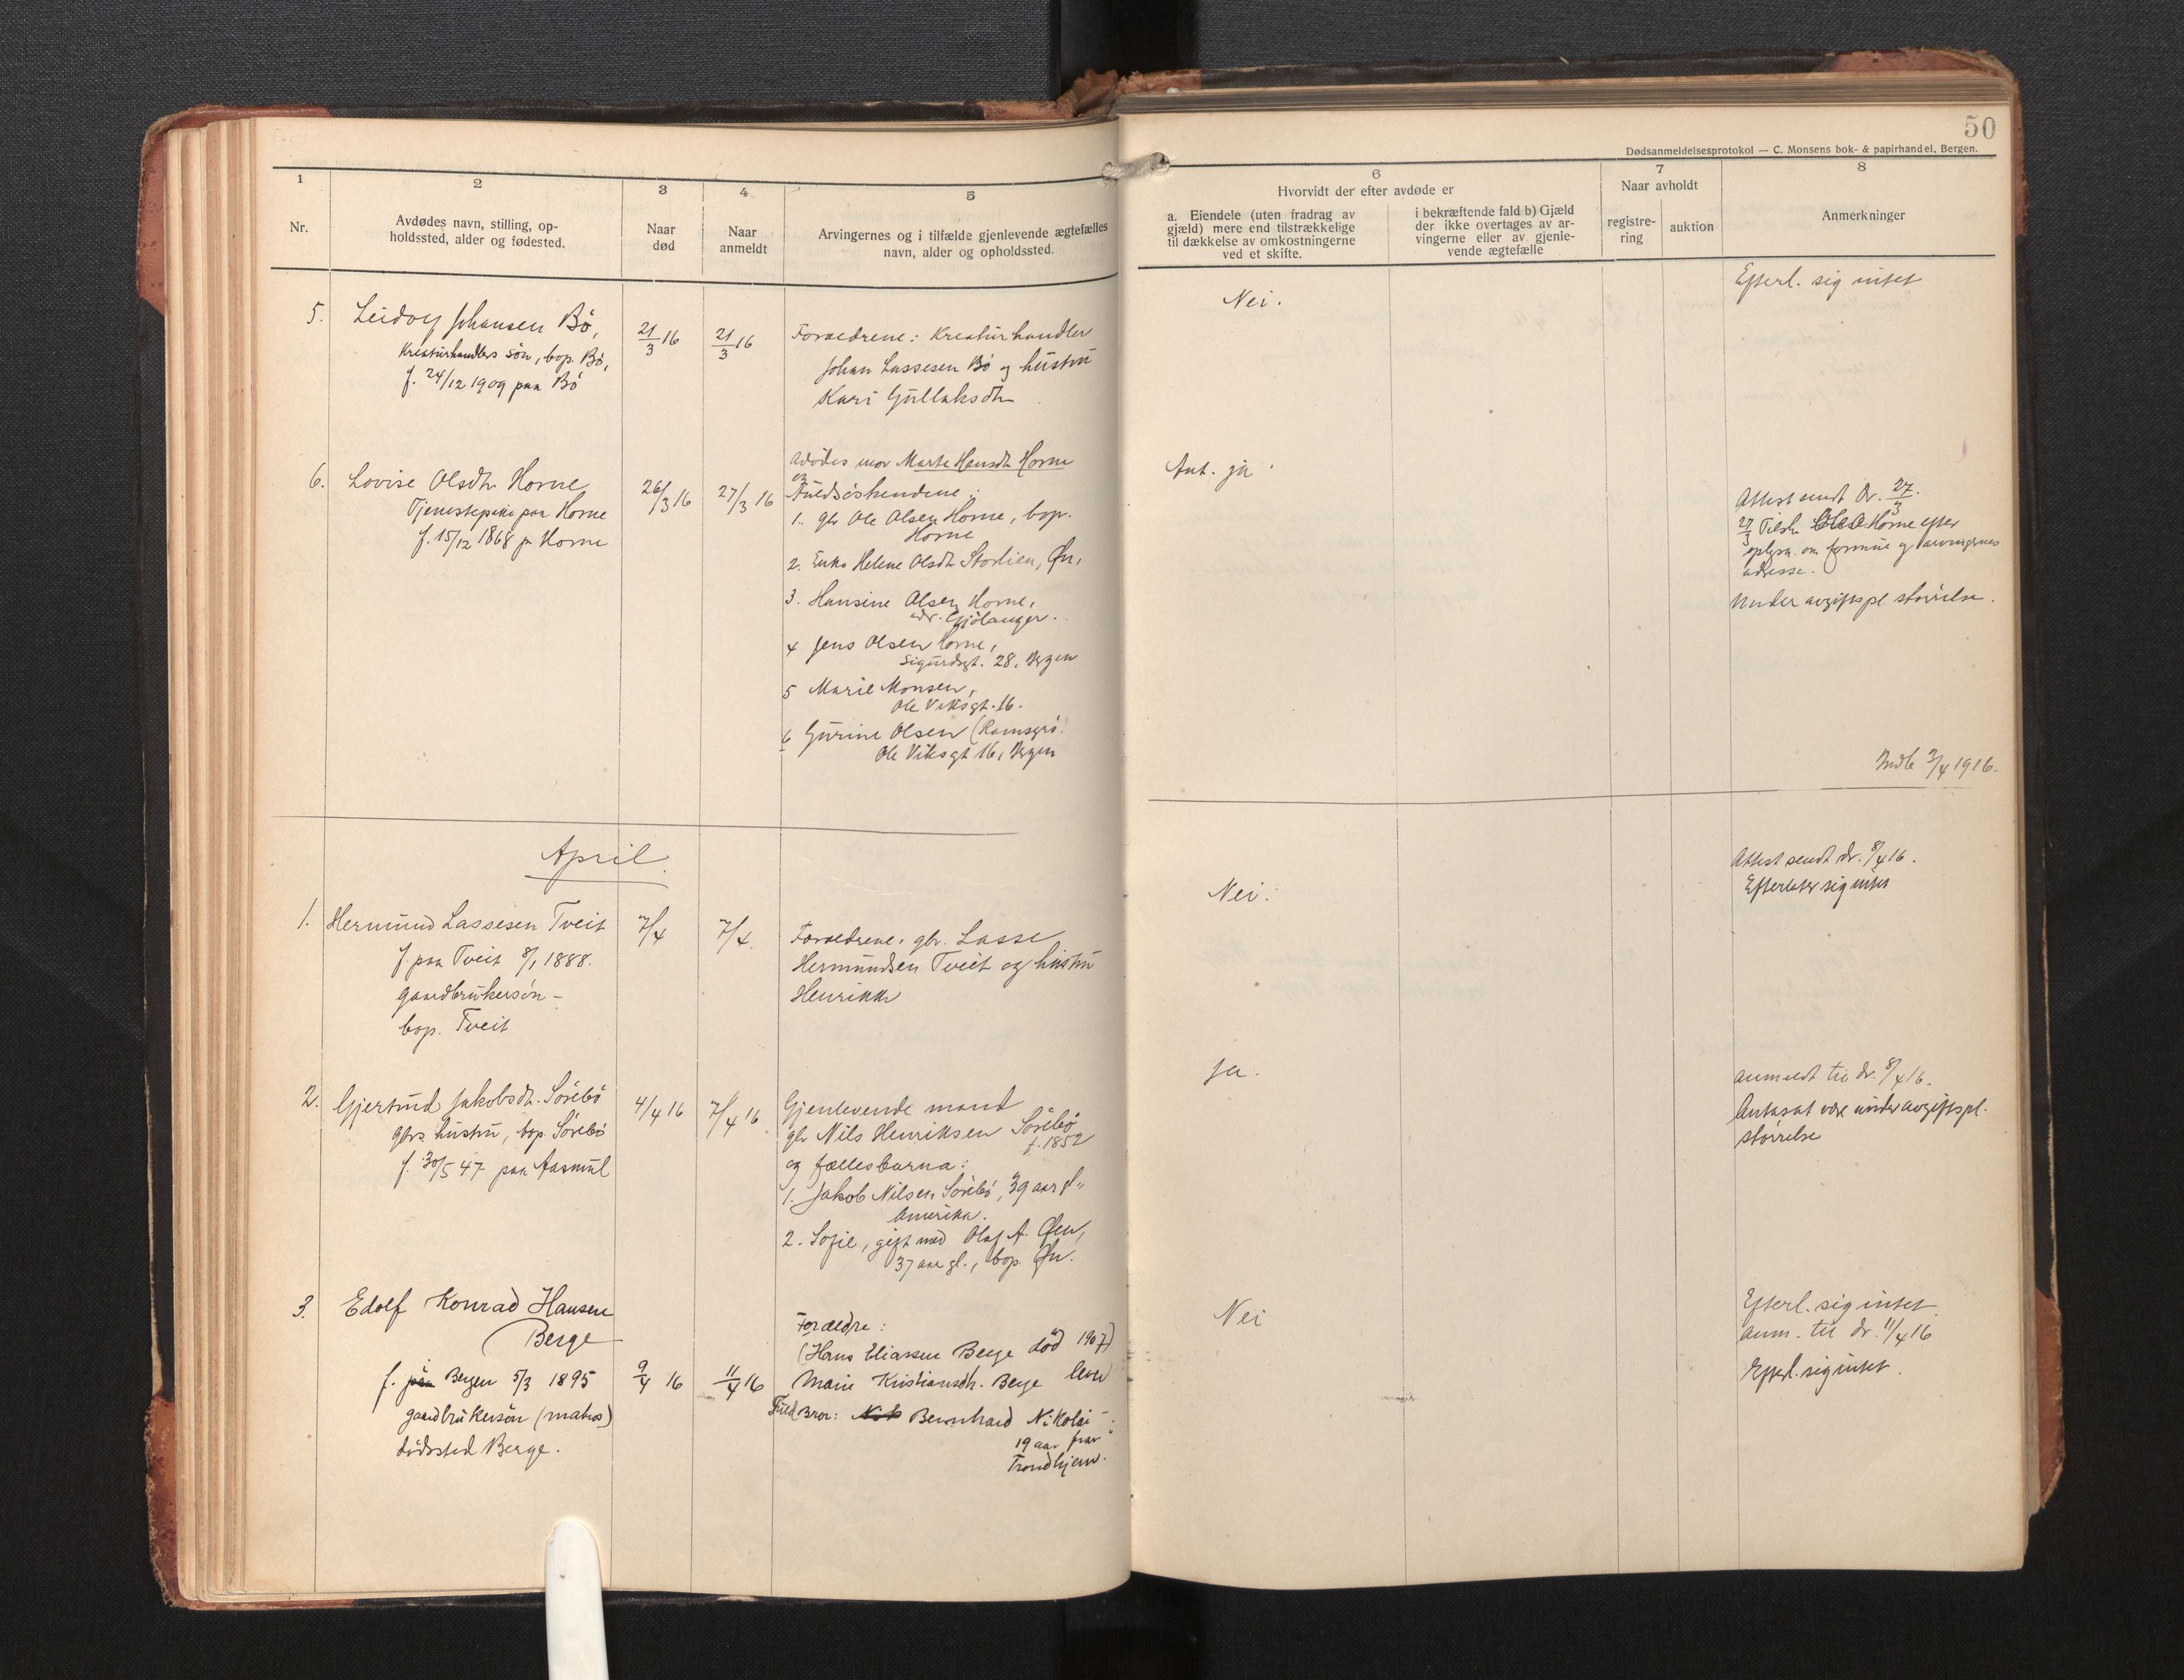 50
Dødsanmeldelsesprotokol — C. Monsens bok- & papirhandel, Bergen.
1
2
3
4
5
6
7
8
Nr.
Avdødes navn, stilling, op-
holdssted, alder og fødested.
Naar
død
Naar
anmeldt
Arvingernes og i tilfælde gjenlevende ægtefælles
navn, alder og opholdssted.
Hvorvidt der efter avdøde er
a. Eiendele (uten fradrag av
gjæld) mere end tilstrækkelige
til dækkelse av omkostningerne
ved et skifte.
i bekræftende fald b) Gjæld
der ikke overtages av ar-
vingerne eller av gjenle-
vende ægtefælle
Naar avholdt
registre-
ring
auktion
Anmerkninger
5.
Leidov Johansen Bö,
Kreaturhandlers sön, bop. Bö,
f. 24/12 1909 paa Bö
21/3 16
21/3 16
Forældrene: Kreaturhandler
Johan Lassesen Bö og hustru
Kari Gullaksdtr
Nei.
Efterl. sig intet
6.
Lovise Olsdtr Horne
Tjenestepike paa Horne
f. 15/12 1868 p Horne
26/3 16
27/3 16
Avdödes mor Marte Hansdtr Horne
og
Fuldsöskendene:
1. gbr Ole Olsen Horne, bop.
Horne
2. Enke Helene Olsdtr Storlien, Øn,
3. Hansine Olsen Horne,
adr. Gjölanger.
4 Jens Olsen Horne,
Sigurdsgt. 28, Bergen
5 Marie Monsen,
Ole Viksgt. 16.
6 Gurine Olsen (Ramsgrö)
Ole Viksgt 16, Bergen
Ant. ja.
Attest sendt dr. 27/3.
27/3 Tilskr. Ole O. Horne efter
oplysn. om formue og arvingernes
adresse.
Under avgiftspl. störrelse.
Indb 3/4 1916.
April.
1.
Hermund Lassesen Tveit
f. paa Tveit 8/1 1888.
gaardbrukersön -
bop. Tveit
7/4
7/4.
Forældrene: gbr. Lasse
Hermundsen Tveit og hustru
Henrikke
Nei.
Attest sendt dr. 8/4 16.
Efterlater sig intet
2.
Gjertrud Jakobsdtr. Sörebö
gbrs hustru, bop. Sörebö
f. 30/5 47 paa Aasmul
4/4 16
7/4 16
Gjenlevende mand
gbr Nils Henriksen Sörebö
f. 1852
og fællesbarna:
1. Jakob Nilsen Sörebö, 39 aar gl.,
Amerika.
2. Sofie, gift med Olaf A. Øen,
37 aar gl., bop. Øn.
Ja.
anmeldt til dr. 8/4 16.
Antasat være under avgiftspl.
störrelse
3.
Edolf Konrad Hansen
Berge
f. paa Bergen 5/3 1895
gaardbrukersön (matros)
dödssted Berge.
9/4 16
11/4 16
Forældre:
(Hans Eliassen Berge död 1907)
Marie Kristiansdtr. Berge lever
Fuld Bror: Bernhard Nikolai
19 aar
Trondhjem.
Nei
Efterl. sig intet
anm. til dr. 11/4 16
Efterl. sig intet.